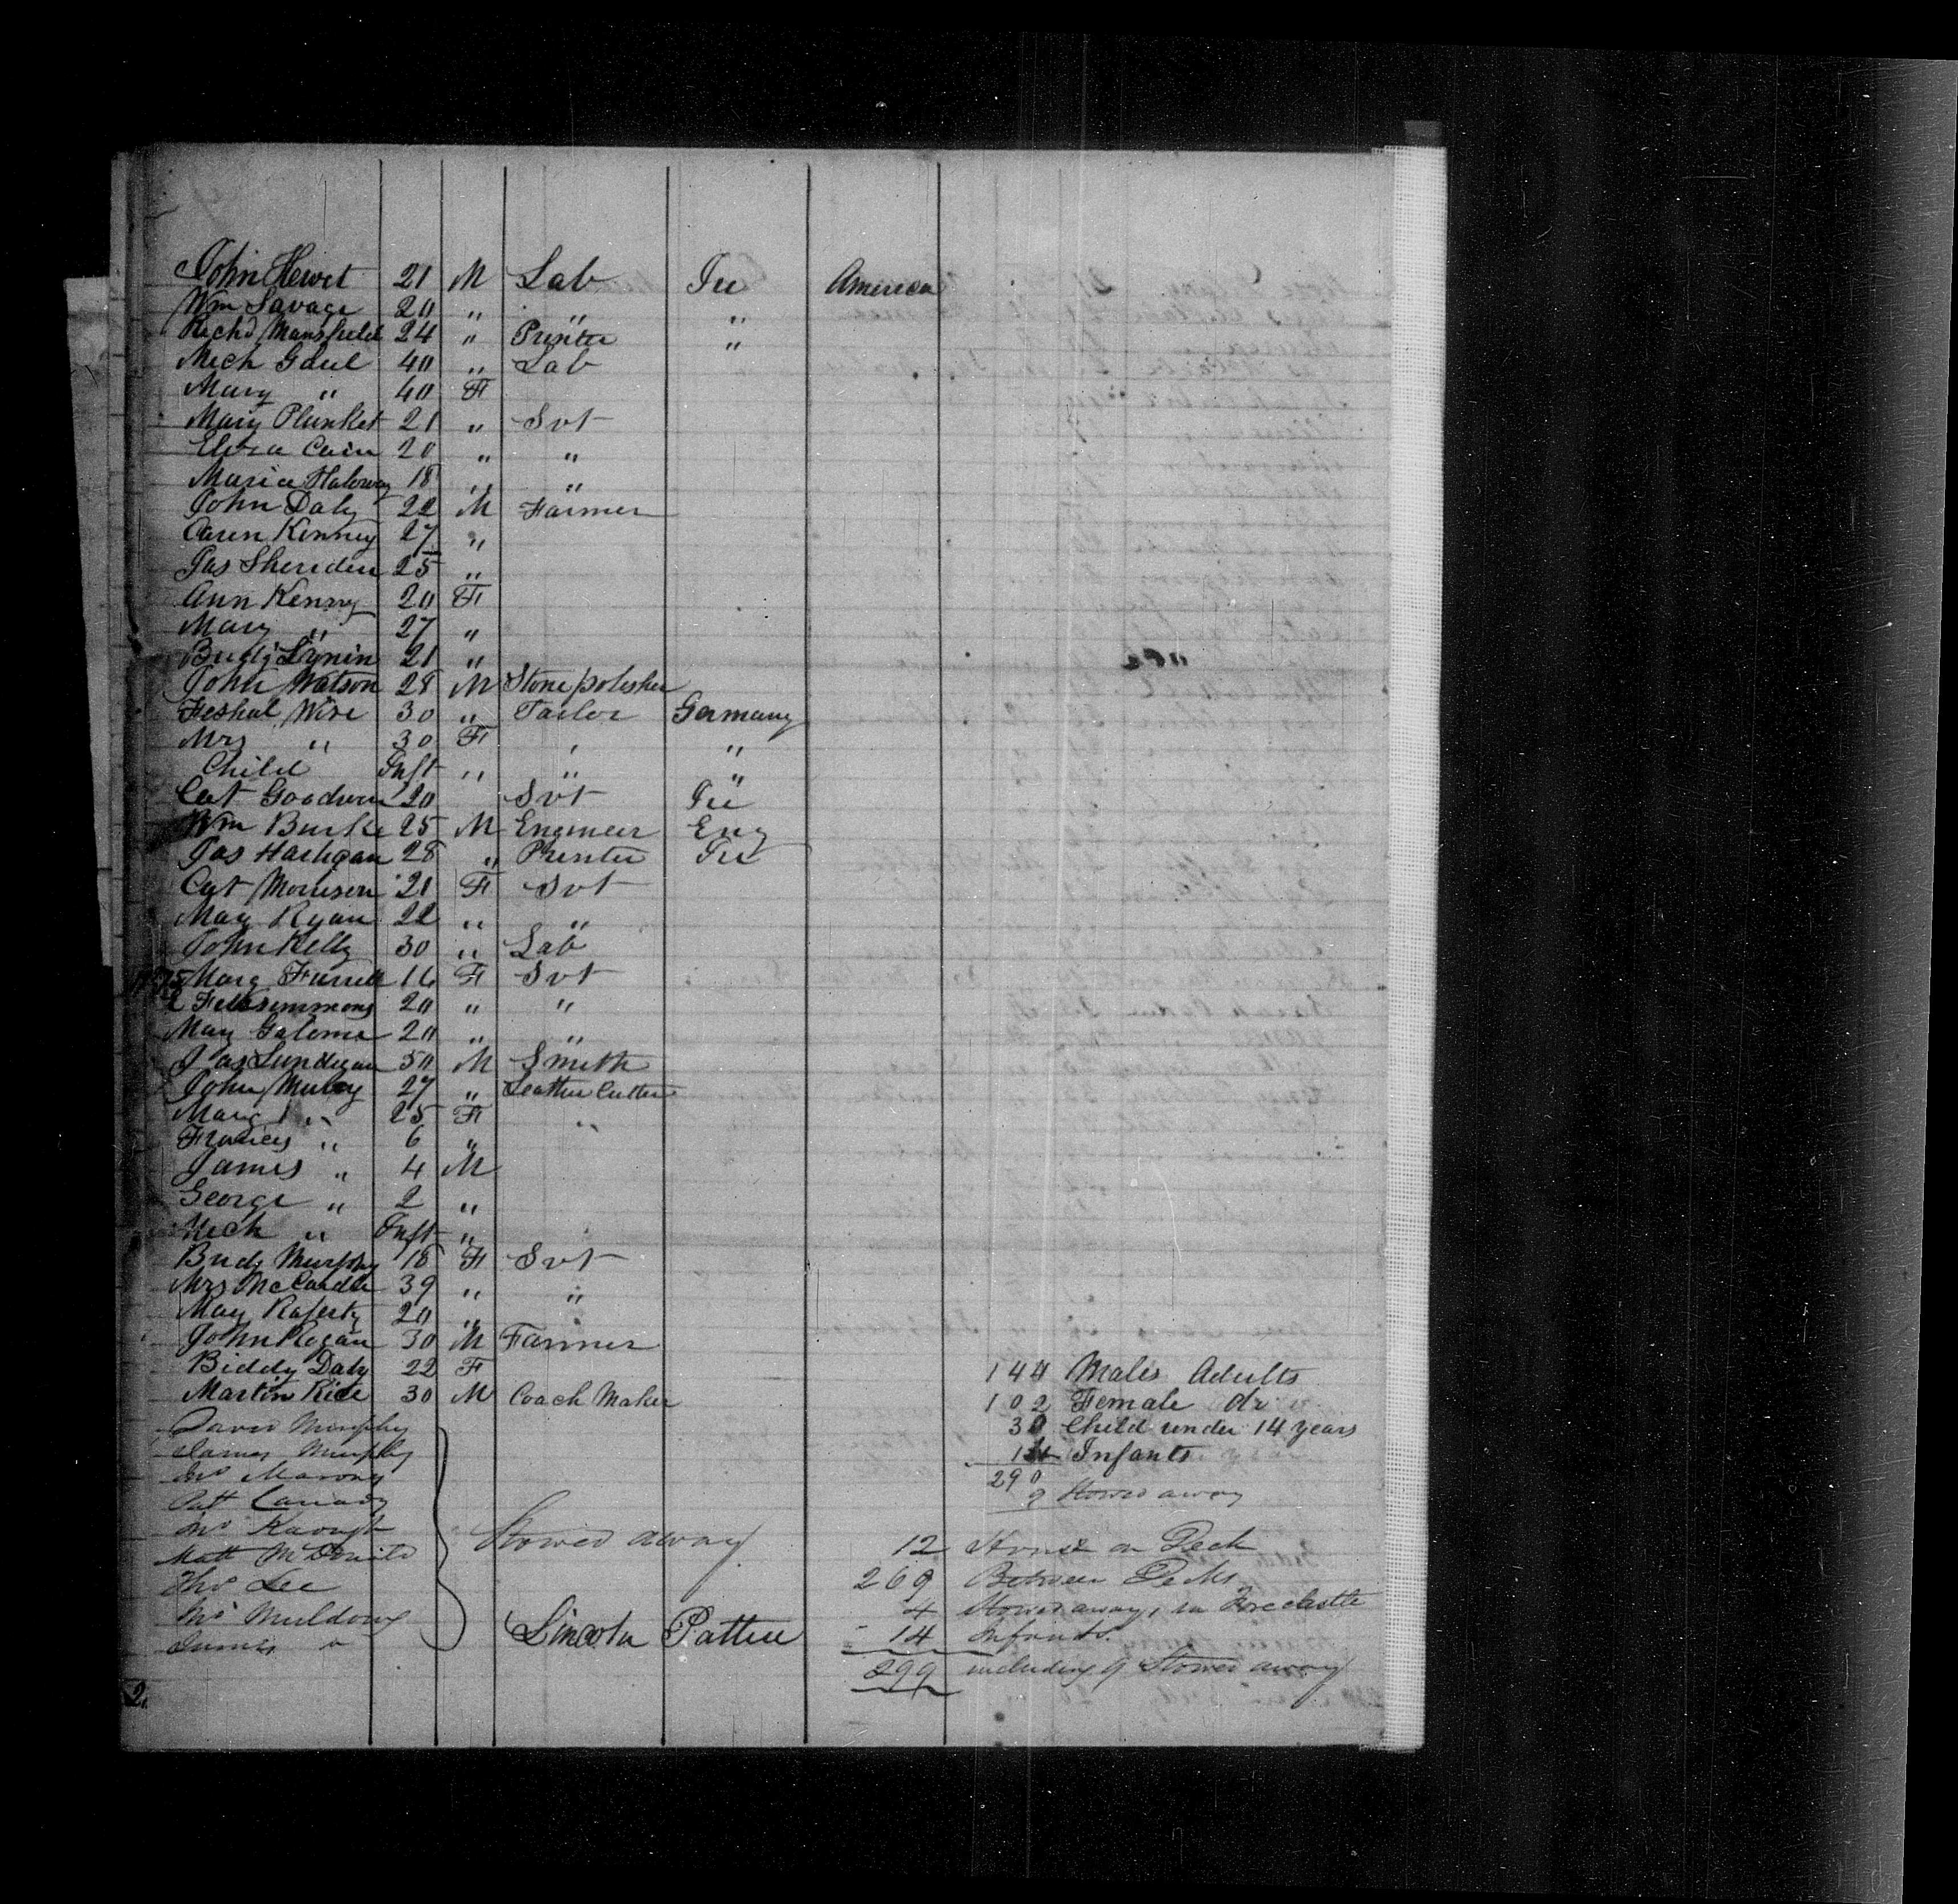 John Hewet 21 M Lab Ire America
Wm Savage 20 " " "
Richd Mansfield 24 " Printer "
Mich Gaul 40 " Lab
Mary " 40 F
Mary Plunket 21 " Svt
Eliza Cain 20 " "
Maria Haloway 18 " "
John Daly 22 M Farmer
Kenney 27 "
Jas Sheriden 25 "
Ann Kenny 20 F
Mary " 27 "
Bridj 21 "
John Watson 28 M Stone polisher
Wise 30 " Tailor Germany
Mrs " 30 F " "
Child Inft " " "
Cat Goodwin 20 Svt Ire
Wm Burke 25 M Engineer Eng
Jas Hartigan 28 " Printer Ire
Cat Morrison 21 F Svt
May Ryan 22 " "
John Kelly 30 " Lab
Marg Farrell 16 F Svt
20 " "
May 20 " "
Jas Lundigan 50 M Smith
John 27 " Leather Cutter
Marg " 25 F "
Francis " 6 "
James " 4 M
George " 2 "
Mich " Inft "
Bridj Murphy 18 F Svt
Mrs McCardle 39 " "
May Raferty 20 "
John Regan 30 M Farmer
Biddy Daly 22 F
Martin Rice 30 M Coach Maker
David Murphy
James Murphy
Jno
Patt
Jno Kavough
Matt McDonald
Thos Lee
Jno Muldowy
James "
Stowed away
Lincoln Patten
144 Males Adults
102 Female do
30 Child under 14 years
14 Infants
290
9 Stowed away
12 House on Deck
269 Between Decks
4 Stowed away, in Forecastle
14 Infants.
299 including 9 Stowed away
2.